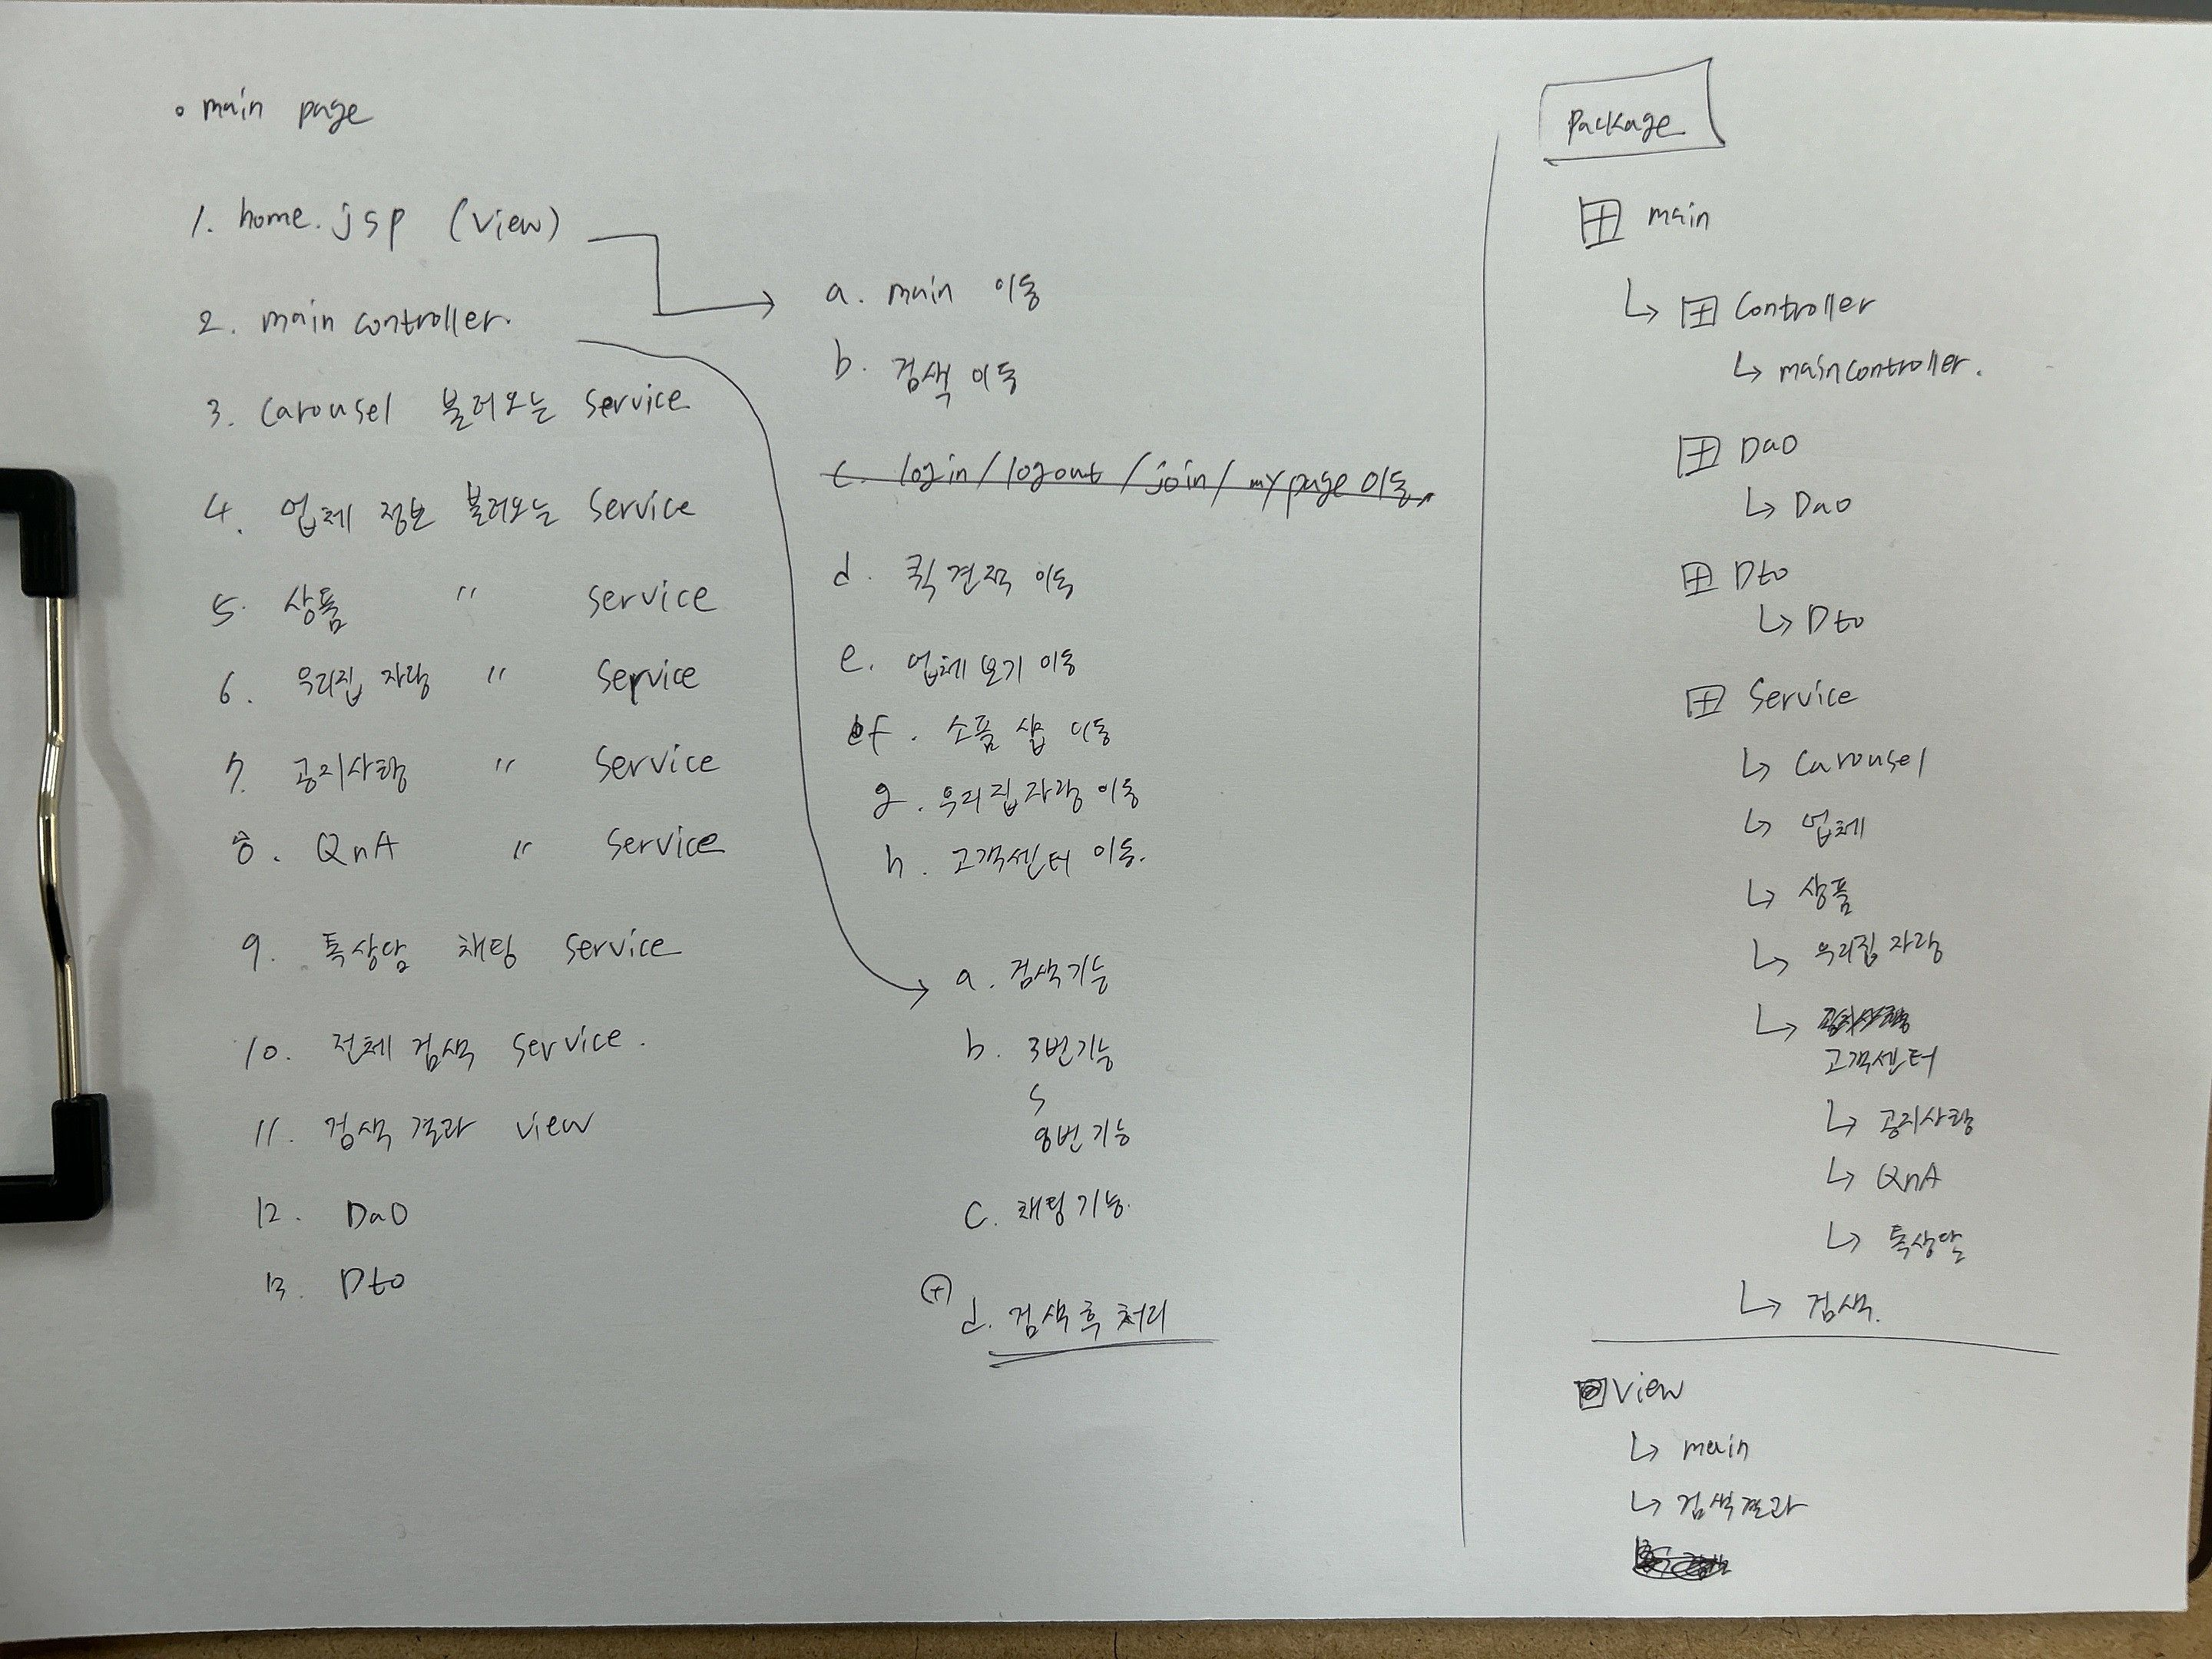 main page
1. home.jsp (view)
2. main controller.
3. carousel 불러오는 service
4. 업체 정보 불러오는 service
5. 상품 〃 service
6. 우리집 자랑 〃 service
7. 공지사항 〃 service
8. QnA 〃 service
9. 톡상담 채팅 service
10. 전체 검색 service.
11. 검색 결과 view
12. Dao
13. Dto
a. main 이동
b. 검색 이동
c. login / logout / join / mypage 이동.
d. 퀵 견적 이동
e. 업체 보기 이동
f. 소품 샵 이동
g. 우리집자랑 이동
h. 고객센터 이동.
a. 검색기능
b. 3번기능
S
8번기능
c. 채팅기능.
+ d. 검색 후 처리
Package
main
Controller
maincontroller.
Dao
Dao
Dto
Dto
Service
carousel
업체
상품
우리집 자랑
고객센터
공지사항
QnA
톡상담
검색.
view
main
검색결과